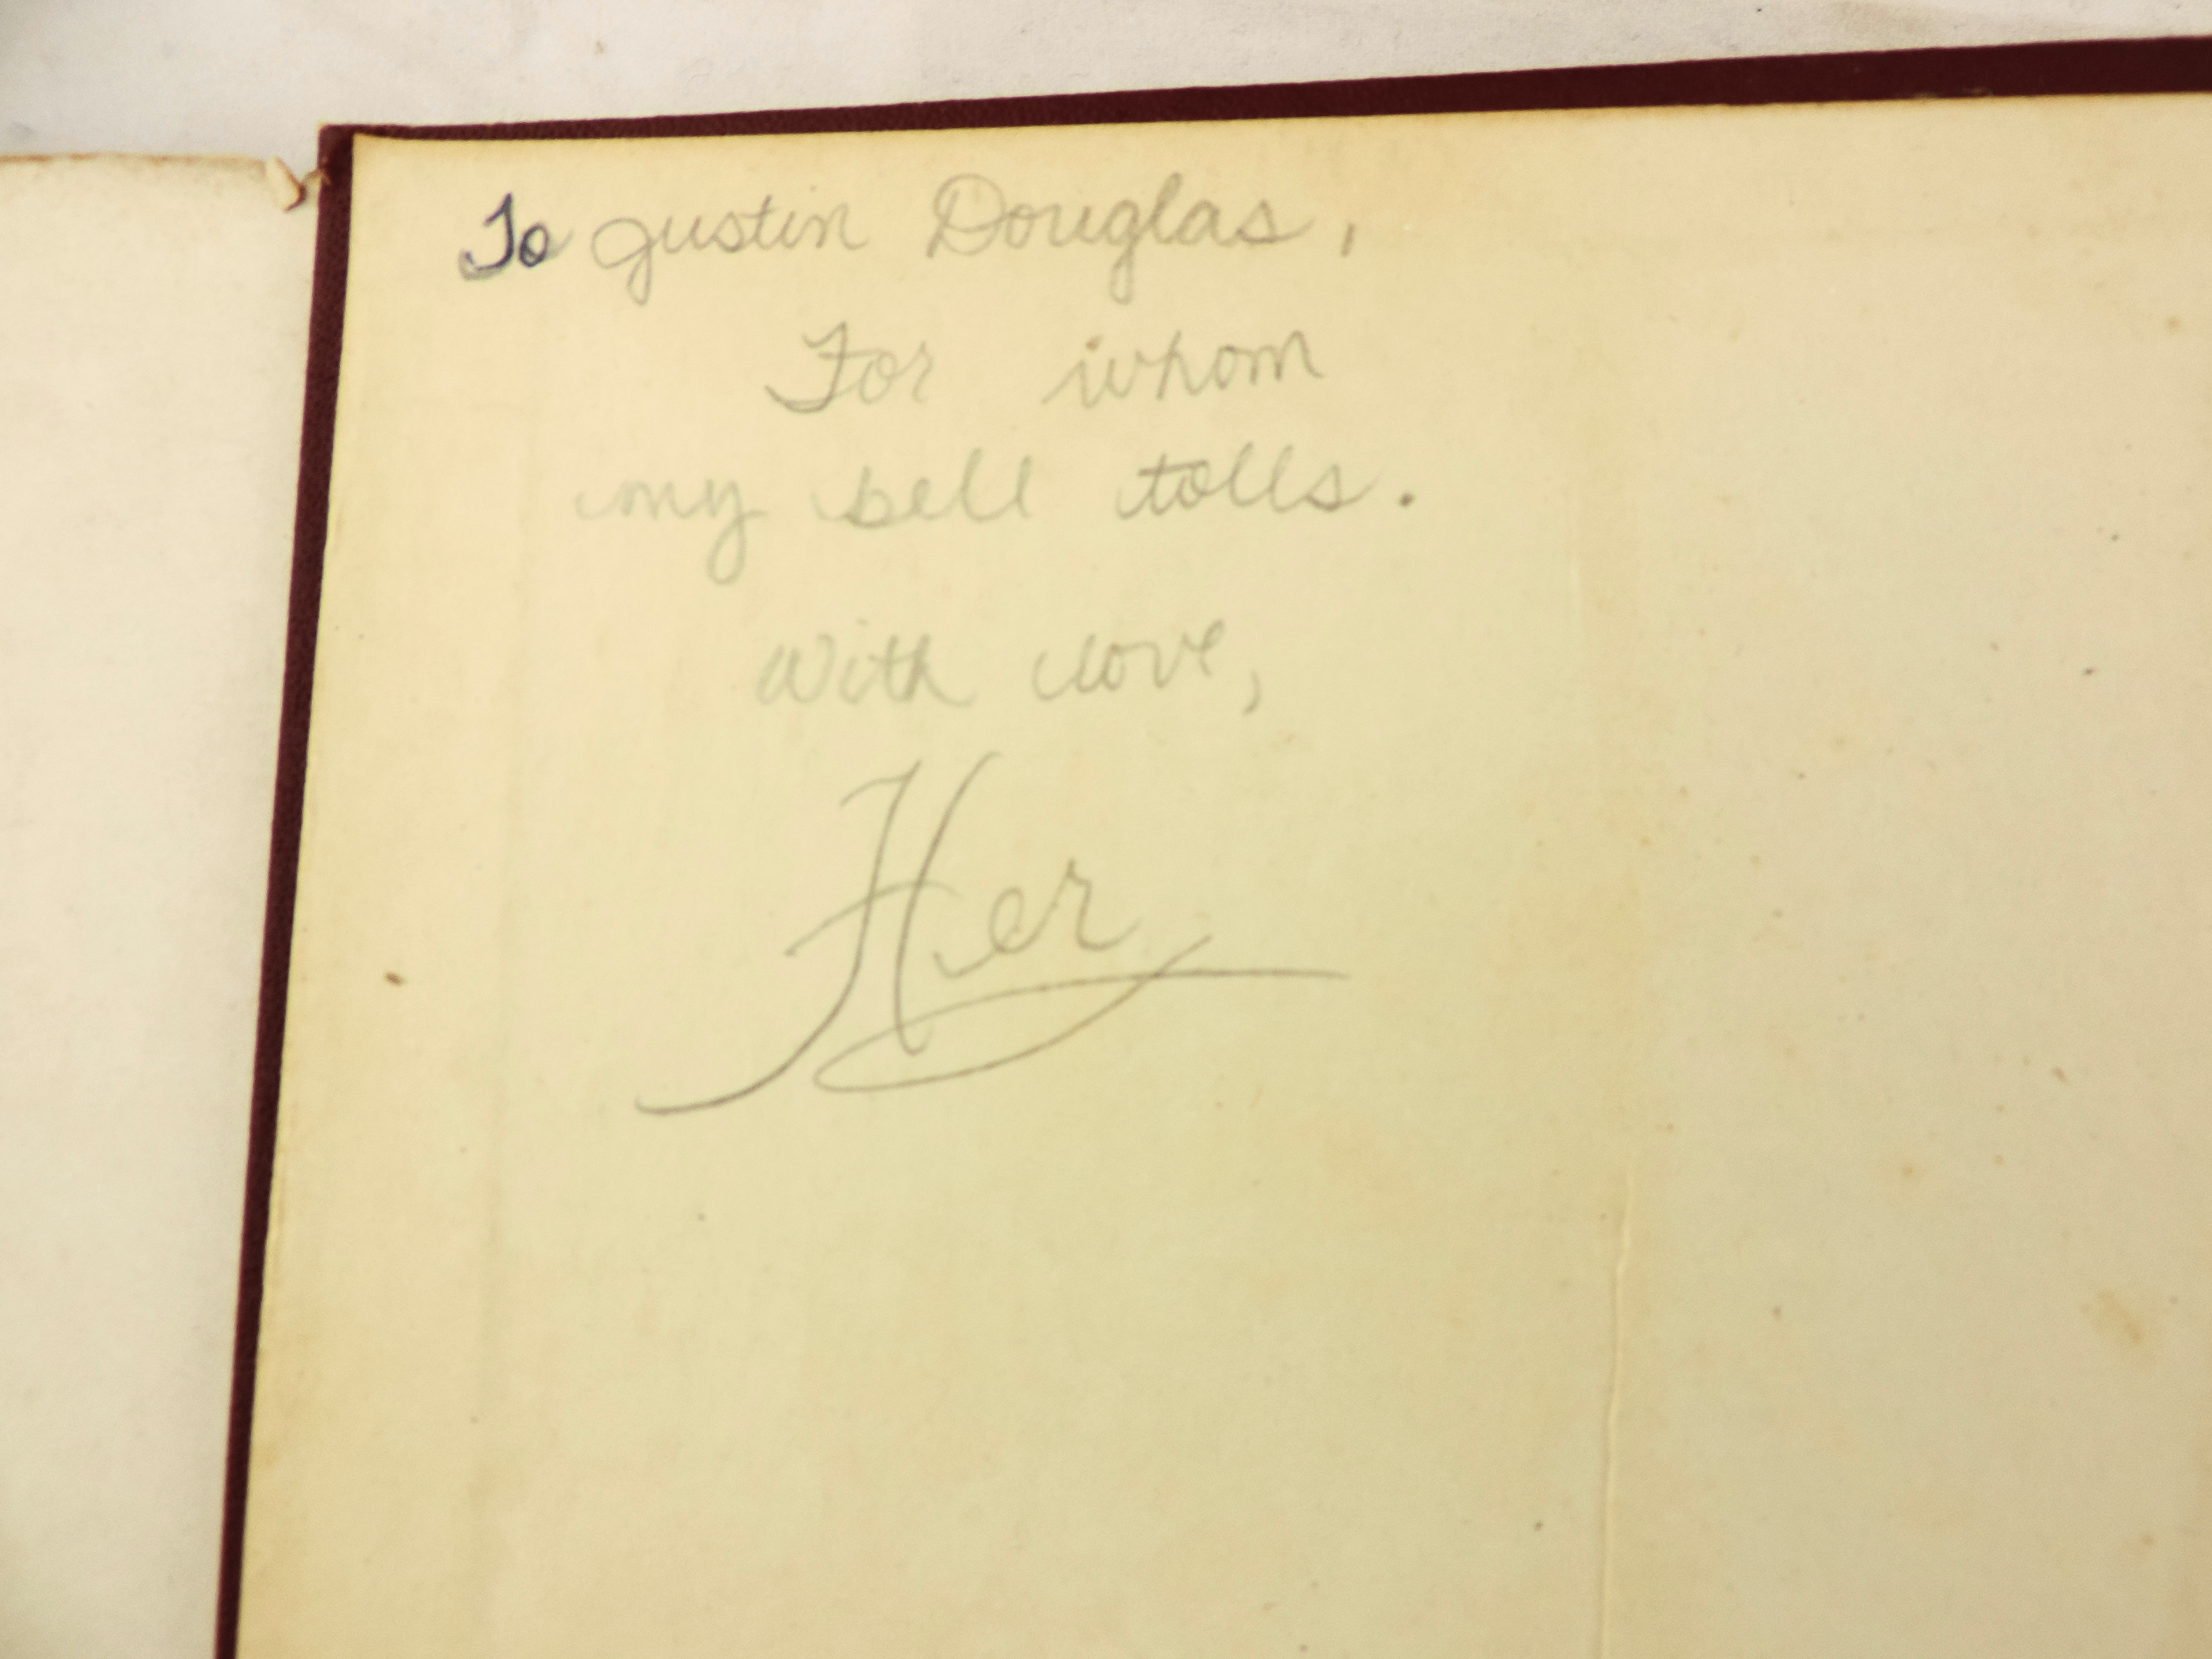 To Justin Douglas,
For whom
my bell tolls.
With love,
Her